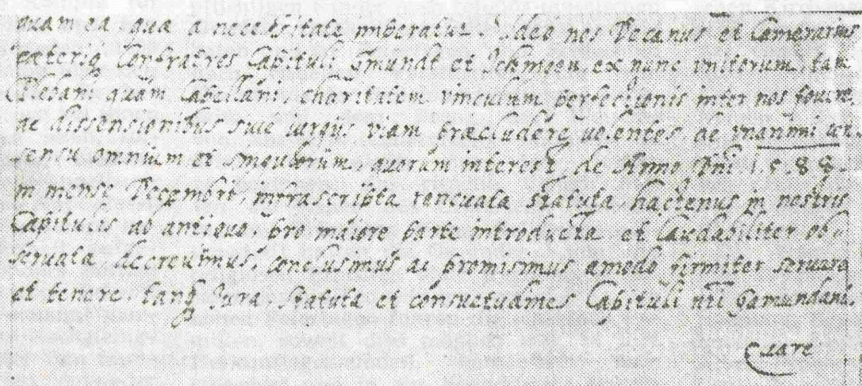 quam ea quæ a necessitate imperatur. Ideo nos Decanus et Camerarius
cæteriq Confratres Capituli Gmundt et Ickmoen, ex nunc vnitorum, tam
Plebani quam Capellani, charitatem vinculum perfectionis inter nos fouere,
ac dissensionibus siue iurgijs viam præcludere volentes, de vnanimi con
sensu omnium et singulorum, quorum interest, de Anno Dni 1588.
in mense Decembri, infrascripta renouata statuta hactenus in nostris
Capitulis ab antiquo, pro maiore parte introducta et laudabiliter ob-
seruata decreuimus, conclusimus ac promisimus amodo firmiter seruare
et tenere, tanq Jura, statuta et consuetudines Capituli nri Gamundani.
Quare